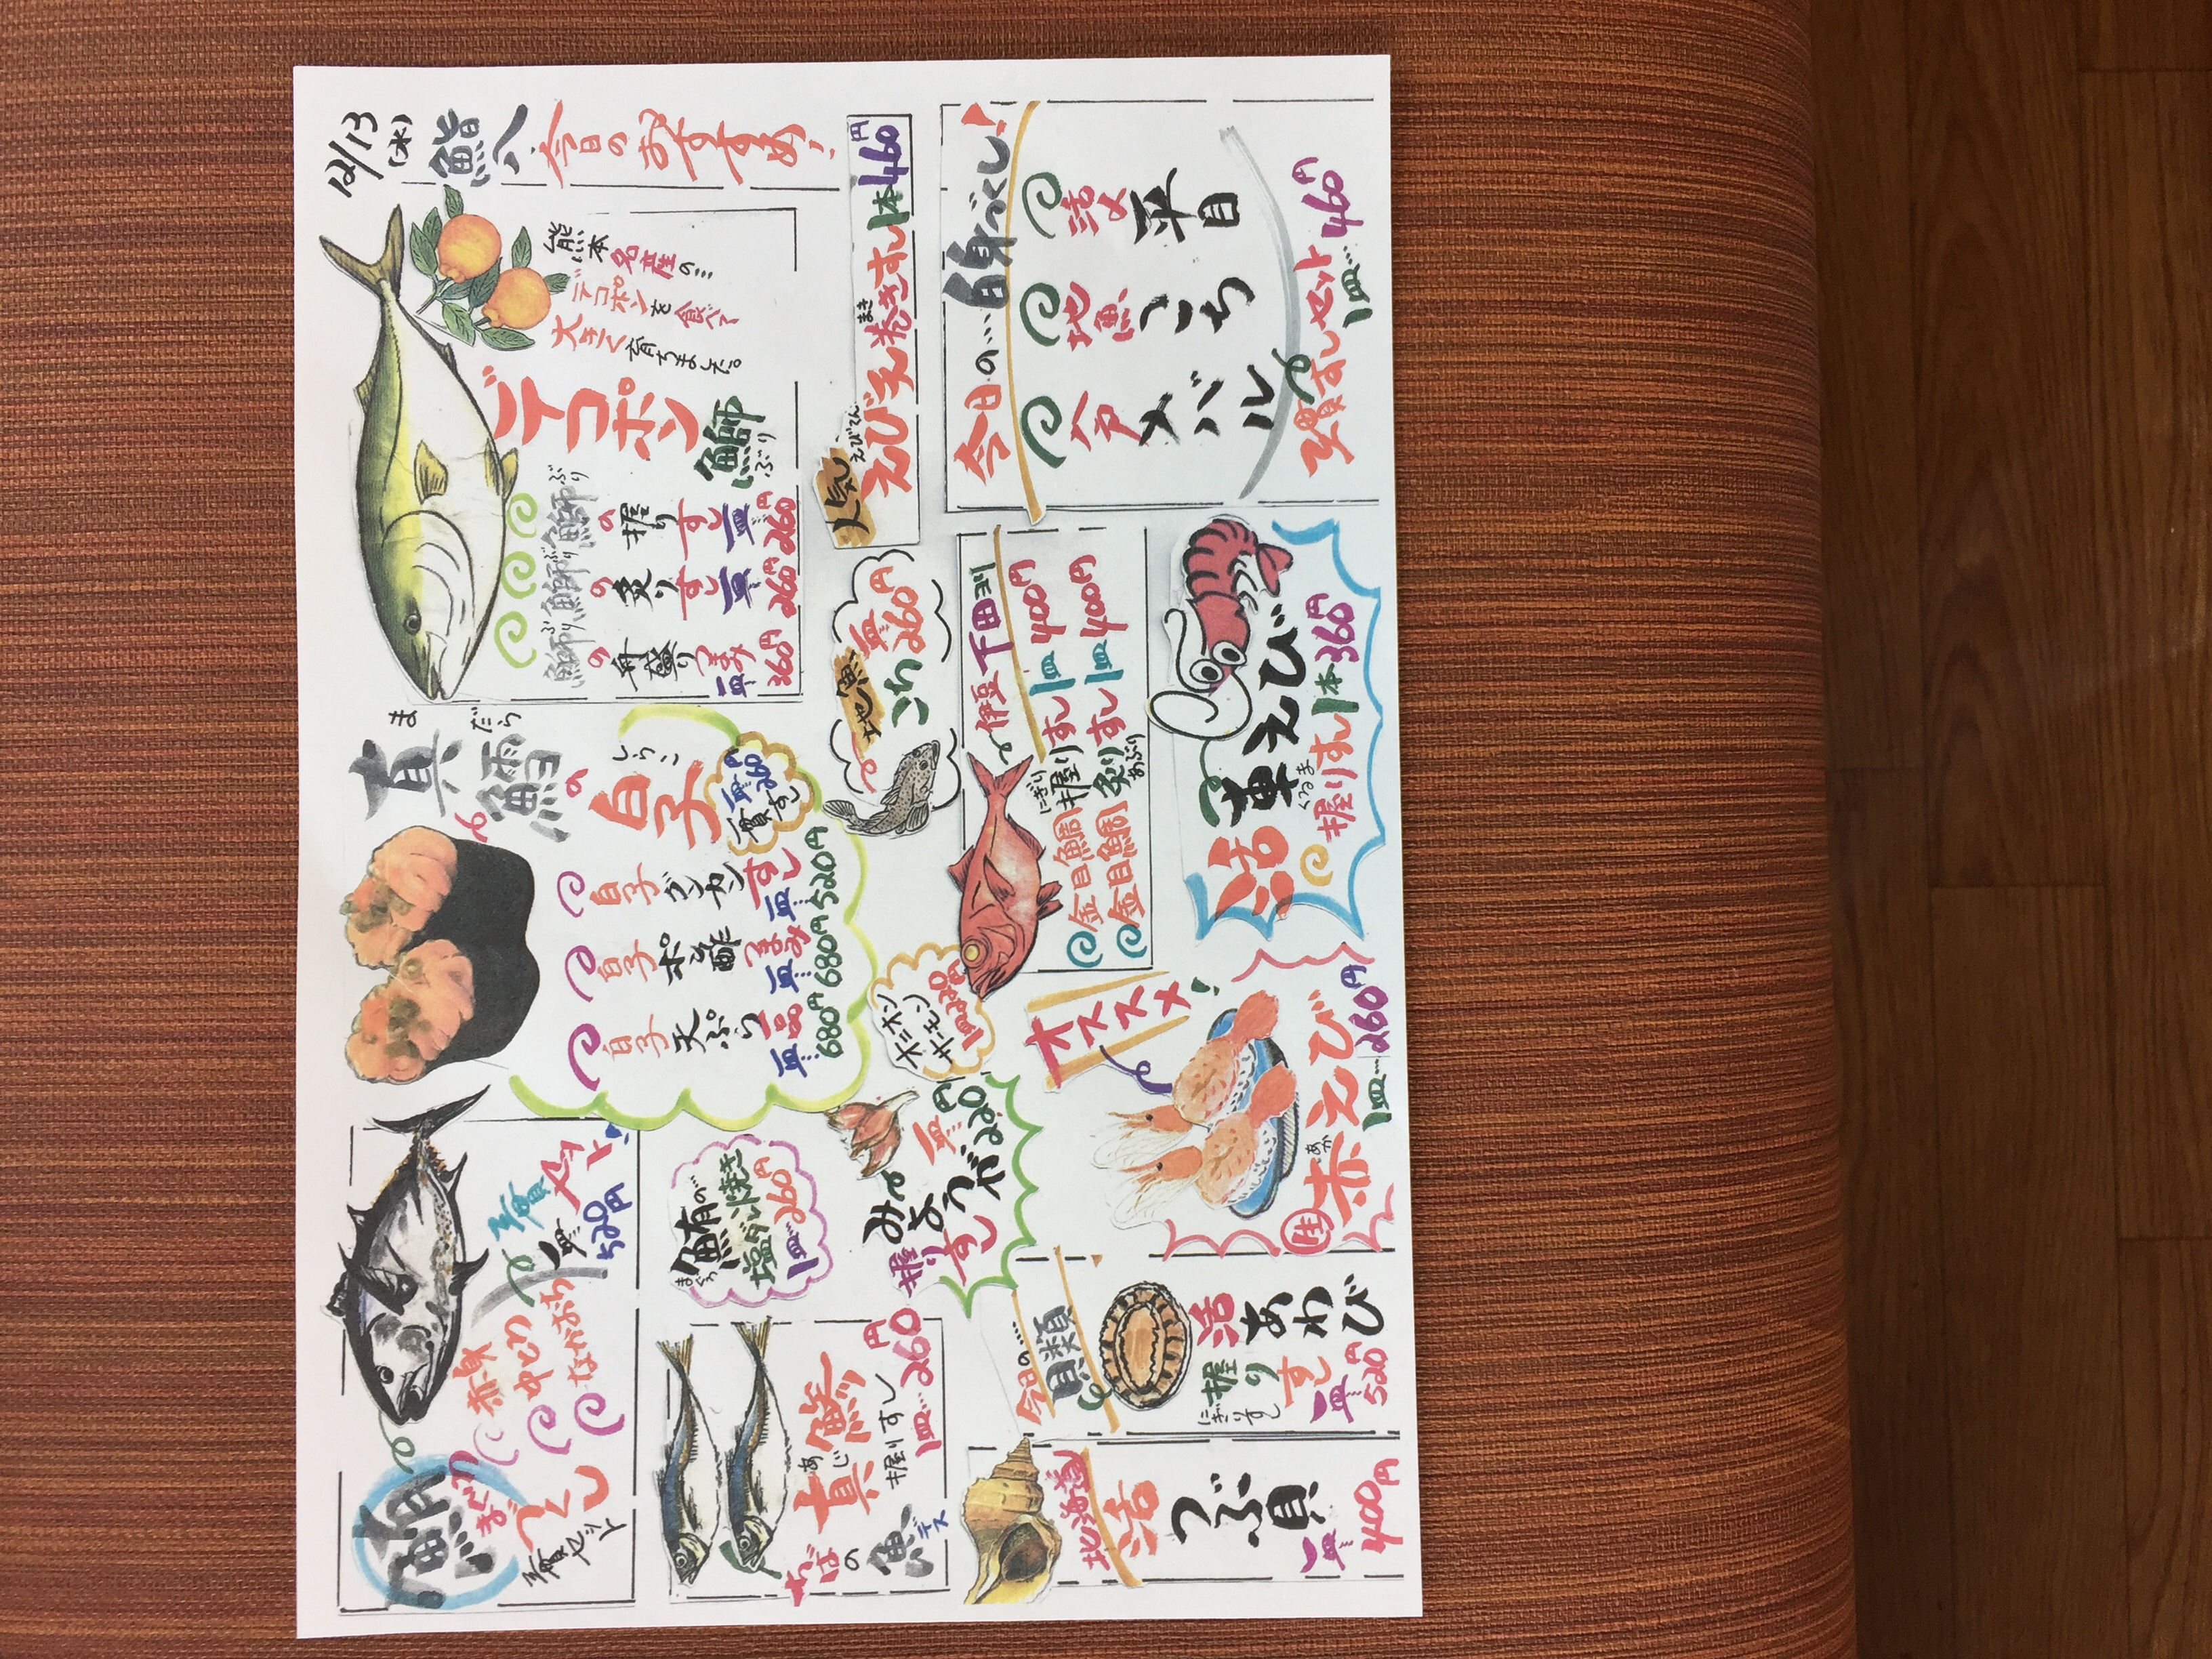 12/13
(水)
鮨八
今日のおすすめ!
熊本名産の…
デコポンを食べて
大きく育ちました。
デコポン
鰤
ぶり
鰤の握りすし一皿260円
鰤の炙りすし一皿260円
鰤の舟盛りつまみ一皿360円
ま だら
真鱈の
しらこ
白子
一皿260円
一貫すし
白子グンカンすし一皿520円
白子ポン酢つまみ一皿680円
白子天ぷら一品一皿680円
鮪
まぐろ
づくし
三貫セット
赤身
中とろ
なかおち
三貫セット
一皿520円
人気
えびてん
えび天巻きすし1本460円
まき
地魚
こち
一皿260円
オニオン
サーモン
鮪の…
まぐろ
塩ダレ焼き
1皿260円
みょうが
握りすし
一皿220円
ちばの
魚デス
真鯵
あじ
握りすし
1皿…260円
今日の…白身づくし!
活〆平目
地魚こち
メバル
三貫すしセット
1皿…460円
伊豆下田ヨリ
金目鯛握りすし1皿400円
にぎり
金目鯛炙りすし1皿400円
あぶり
活車えび
くるま
握りすし1本360円
オススメ!
生赤えび
あか
1皿…260円
今日の…
貝類
活あわび
握りすし
にぎりすし
一皿520円
北海道
活つぶ貝
一皿400円